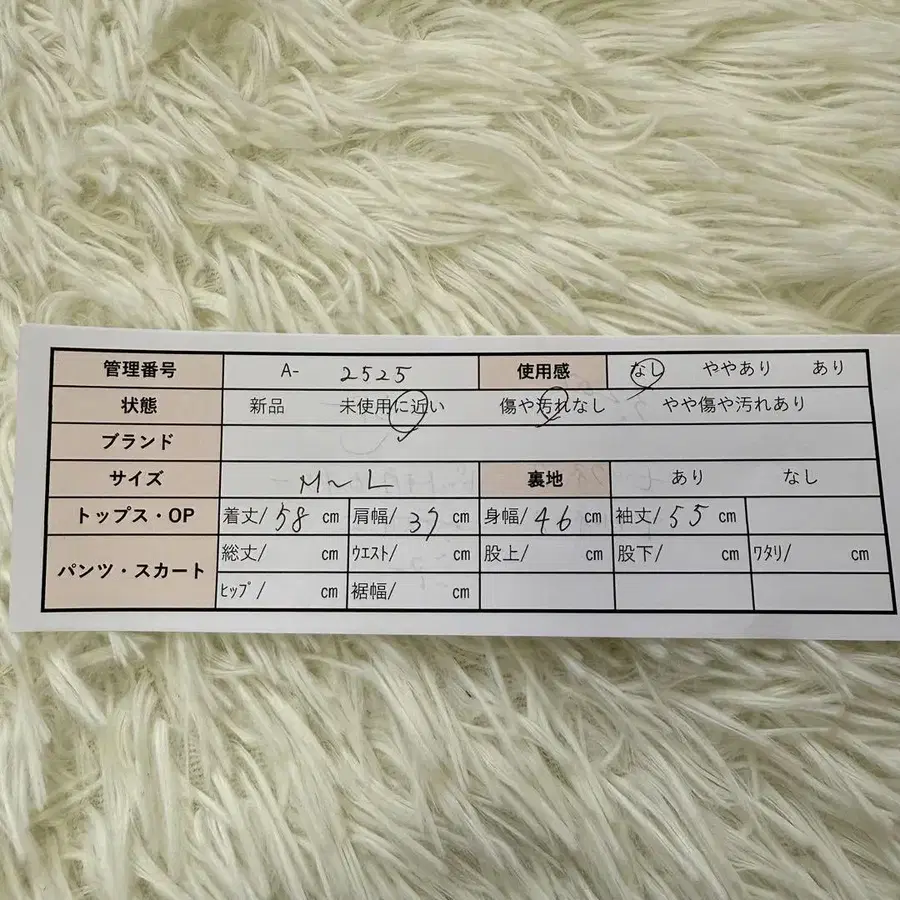 管理番号 A- 2525 使用感 なし ややあり あり
状態 新品 未使用に近い 傷や汚れなし やや傷や汚れあり
ブランド
サイズ M~L 裏地 あり なし
トップス・OP 着丈/ 58 cm 肩幅/ 37 cm 身幅/ 46 cm 袖丈/ 55 cm
パンツ・スカート 総丈/ cm ウエスト/ cm 股上/ cm 股下/ cm ワタリ/ cm
ヒップ/ cm 裾幅/ cm